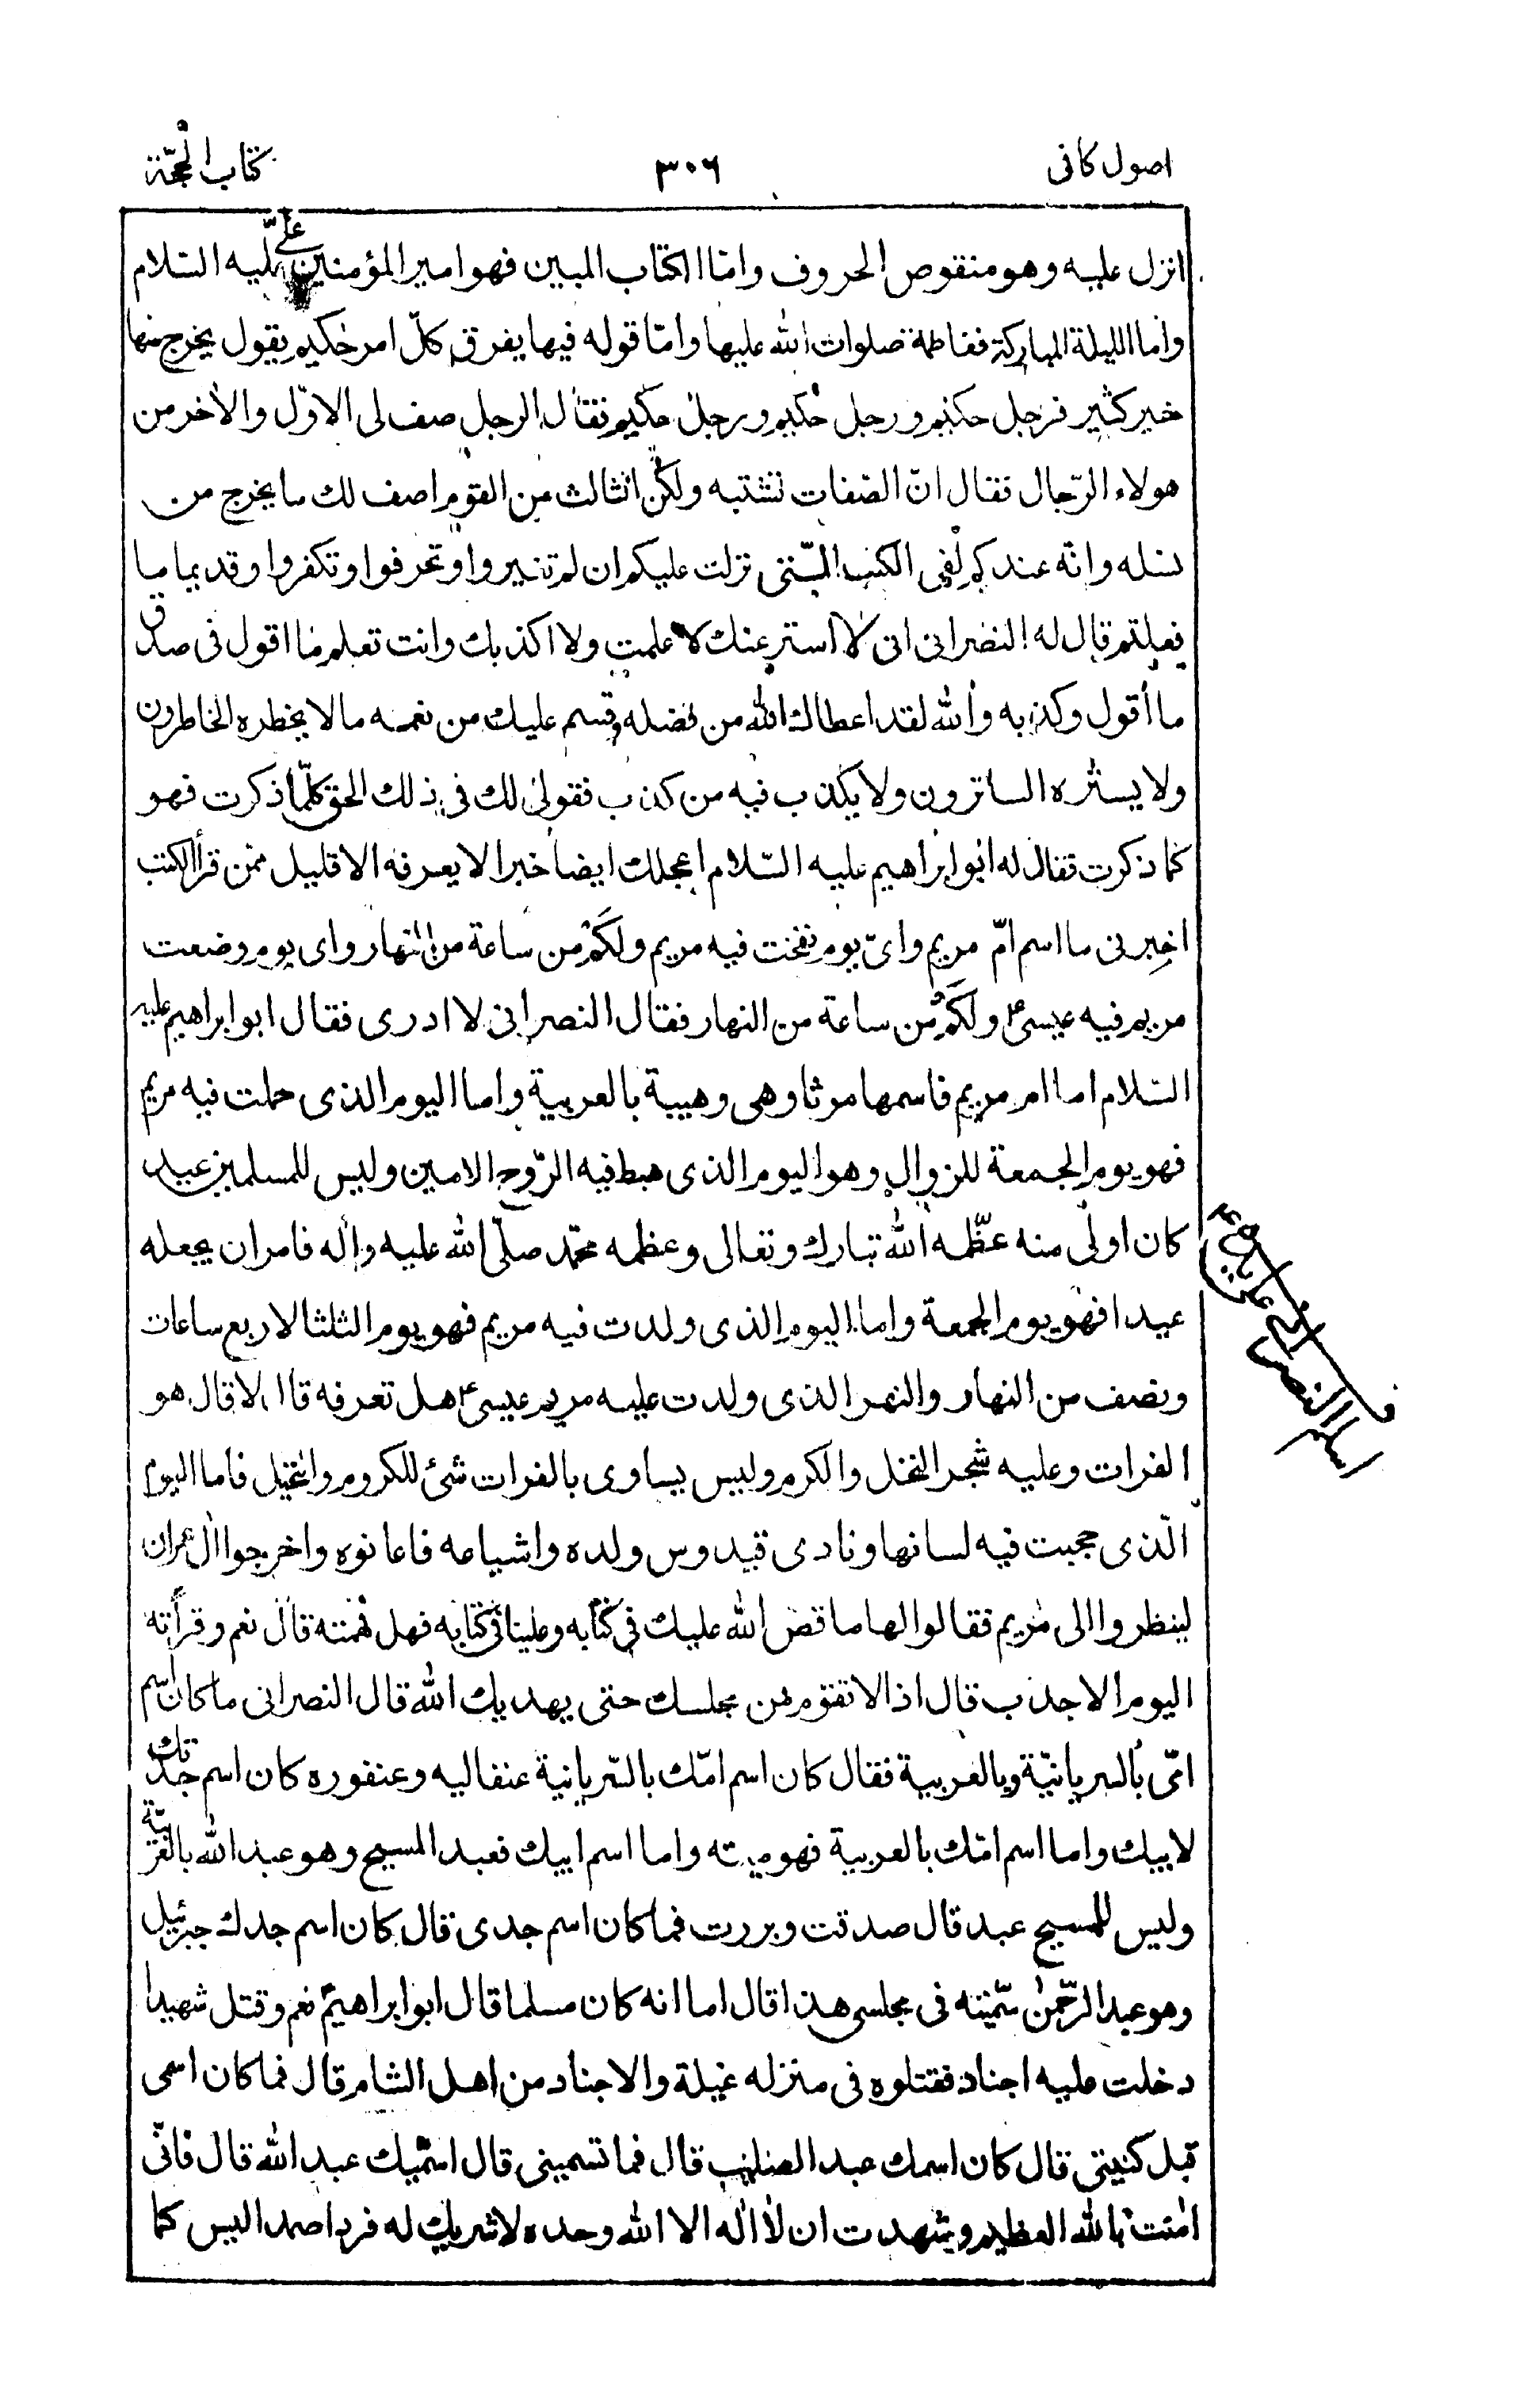 اصول كافى ٣٠٦ كتاب الحجّة
انزل عليه وهو منقوص الحروف وامّا الكتاب المبين فهو امير المؤمنين علىّ عليه السّلام
وامّا الليلة المباركة ففاطمة صلوات الله عليها وامّا قوله فيها يفرق كلّ امر حكيم يقول يخرج منها
خير كثير فرجل حكيم ورجل حكيم ورجل حكيم فقال الرجل صف لى الاوّل والاخر من
هولاء الرّجال فقال انّ الصّفات تشتبه ولكن الثالث من القوم اصف لك ما يخرج من
نسله وانّه عندكم لفى الكتب الّتى نزلت عليكم ان لم تغيروا وتحرفوا وتكفروا وقديما ما
فعلتم قال له النصرانى انى لا استر عنك ما علمت ولا اكذبك وانت تعلم ما اقول فى صدق
ما أقول وكذبه والله لقد اعطاك الله من فضله وقسم عليك من نعمه مالا يخطره الخاطرون
ولا يستره الساترون ولا يكذب فيه من كذب فقولى لك فى ذلك الحق كلّما ذكرت فهو
كما ذكرت فقال له ابو ابراهيم عليه السّلام اعجلك ايضا خبرا لا يعرفه الا قليل ممّن قرأ الكتب
اخبرنى ما اسم امّ مريم واىّ يوم نفخت فيه مريم ولكم من ساعة من النهار واى يوم وضعت
مريم فيه عيسى ع ولكم من ساعة من النهار فقال النصرانى لا ادرى فقال ابو ابراهيم عليه
السّلام اما ام مريم فاسمها مرثا وهى وهيبة بالعربية واما اليوم الذى حملت فيه مريم
فهو يوم الجمعة للزوال وهو اليوم الذى هبط فيه الرّوح الامين وليس للمسلمين عيد
كان اولى منه عظّمه الله تبارك وتعالى وعظمه محمّد صلّى الله عليه واله فامر ان يجعله
عيدا فهو يوم الجمعة واما اليوم الذى ولدت فيه مريم فهو يوم الثلثا لاربع ساعات
ونصف من النهار والنهر الذى ولدت عليه مريم عيسى ع هل تعرفه قال لا قال هو
الفرات وعليه شجر النخل والكرم وليس يساوى بالفرات شئ للكروم والنخيل فأما اليوم
الّذى حجبت فيه لسانها ونادى قيدوس ولده واشياعه فاعانوه واخرجوا ال عمران
لينظروا الى مريم فقالوا لها ما قصّ الله عليك فى كتابه وعلينا فى كتابه فهل فهمته قال نعم وقرأته
اليوم الاحدب قال اذا لا تقوم من مجلسك حتى يهديك الله قال النصرانى ما كان اسم
امّى بالسريانيّة وبالعربية فقال كان اسم امّك بالسّريانية عنفاليه وعنفوره كان اسم جدّتك
لابيك واما اسم امّك بالعربية فهو ميّته واما اسم ابيك فعبد المسيح وهو عبد الله بالعربيّة
وليس للمسيح عبد قال صدقت وبررت فما كان اسم جدى قال كان اسم جدك جبرئيل
وهو عبد الرّحمن سمّيته فى مجلسى هذا قال اما انه كان مسلما قال ابو ابراهيم ع نعم وقتل شهيدا
دخلت عليه اجناد فقتلوه فى منزله غيلة والاجناد من اهل الشام قال فما كان اسمى
قبل كنيتى قال كان اسمك عبد الصليب قال فما تسمينى قال اسمّيك عبد الله قال فانّى
امنت بالله العظيم وشهدت ان لا اله الا الله وحده لا شريك له فردا صمدا ليس كما